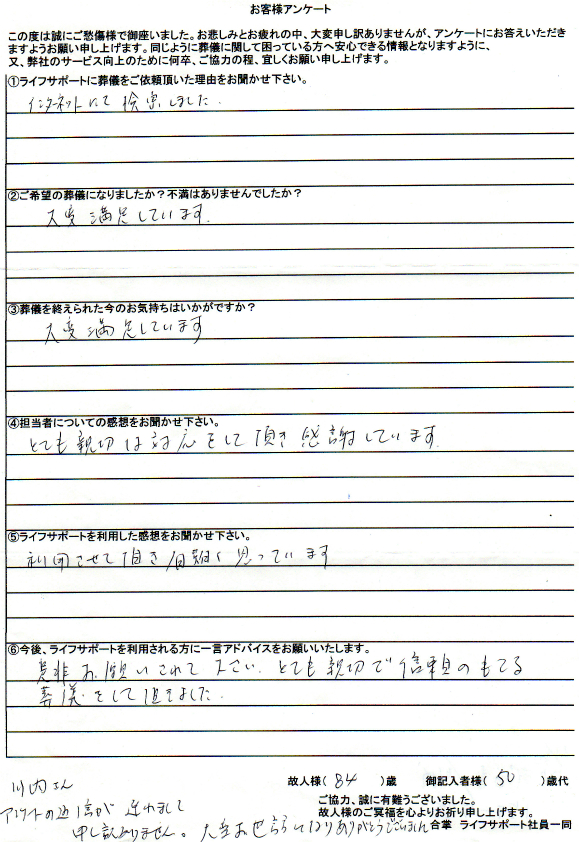 お客様アンケート
この度は誠にご愁傷様で御座いました。お悲しみとお疲れの中、大変申し訳ありませんが、アンケートにお答えいただき
ますようお願い申し上げます。同じように葬儀に関して困っている方へ安心できる情報となりますように、
又、弊社のサービス向上のために何卒、ご協力の程、宜しくお願い申し上げます。
①ライフサポートに葬儀をご依頼頂いた理由をお聞かせ下さい。
インターネットにて検索しました.
②ご希望の葬儀になりましたか？不満はありませんでしたか？
大変満足しています.
③葬儀を終えられた今のお気持ちはいかがですか？
大変満足しています
④担当者についての感想をお聞かせ下さい。
とても親切な対応をして頂き感謝しています.
⑤ライフサポートを利用した感想をお聞かせ下さい。
利用させて頂き有難く思っています
⑥今後、ライフサポートを利用される方に一言アドバイスをお願いいたします。
是非お願いされて下さい. とても親切で信頼のもてる
葬儀をして頂きました.
故人様( 84 )歳 御記入者様( 50 )歳代
川内さん
アンケートの返信が遅れまして
申し訳ありません。大変お世話になりありがとうございました
ご協力、誠に有難うございました。
故人様のご冥福を心よりお祈り申し上げます。
合掌 ライフサポート社員一同